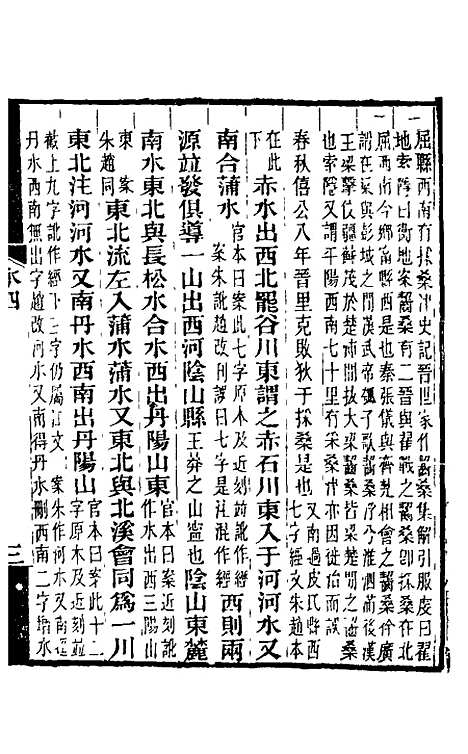 屈縣西南有採桑津史記晉世家作齧桑集解引服虔曰翟
地索隱曰衛地案齧桑有二晉與翟戰之齧桑卽採桑在北
屈西南今鄉甯縣西是也秦張儀與齊楚相會之齧桑徐廣
謂在梁與彭城之間漢武帝瓠子歌齧桑浮兮淮泗滿後漢
王梁擊佼彊蘇茂於楚沛閒拔大梁齧桑皆梁楚閒之齧桑
也索隱又曰平陽西南七十里有採桑津亦因徙治而誤
春秋僖公八年晉里克敗狄于採桑是也又南過皮氏縣西七字經文朱趙本
在此下赤水出西北罷谷川東謂之赤石川東入于河河水又
南合蒲水官本曰案此七字原本及近刻並訛作經案朱訛趙改刊誤曰七字是注混作經西則兩
源竝發俱導一山出西河陰山縣王莽之山甯也陰山東麓
南水東北與長松水合水西出丹陽山東官本曰案近刻訛作水出西三陽山
東案朱趙同東北流左入蒲水蒲水又東北與北溪會同爲一川
東北注河河水又南丹水西南出丹陽山官本曰案此十二字原本及近刻訛
截上九字訛作經下三字仍屬注文 案朱作河水又南得
丹水西南無出字趙改河水又南得丹水刪西南二字增水
水四
三